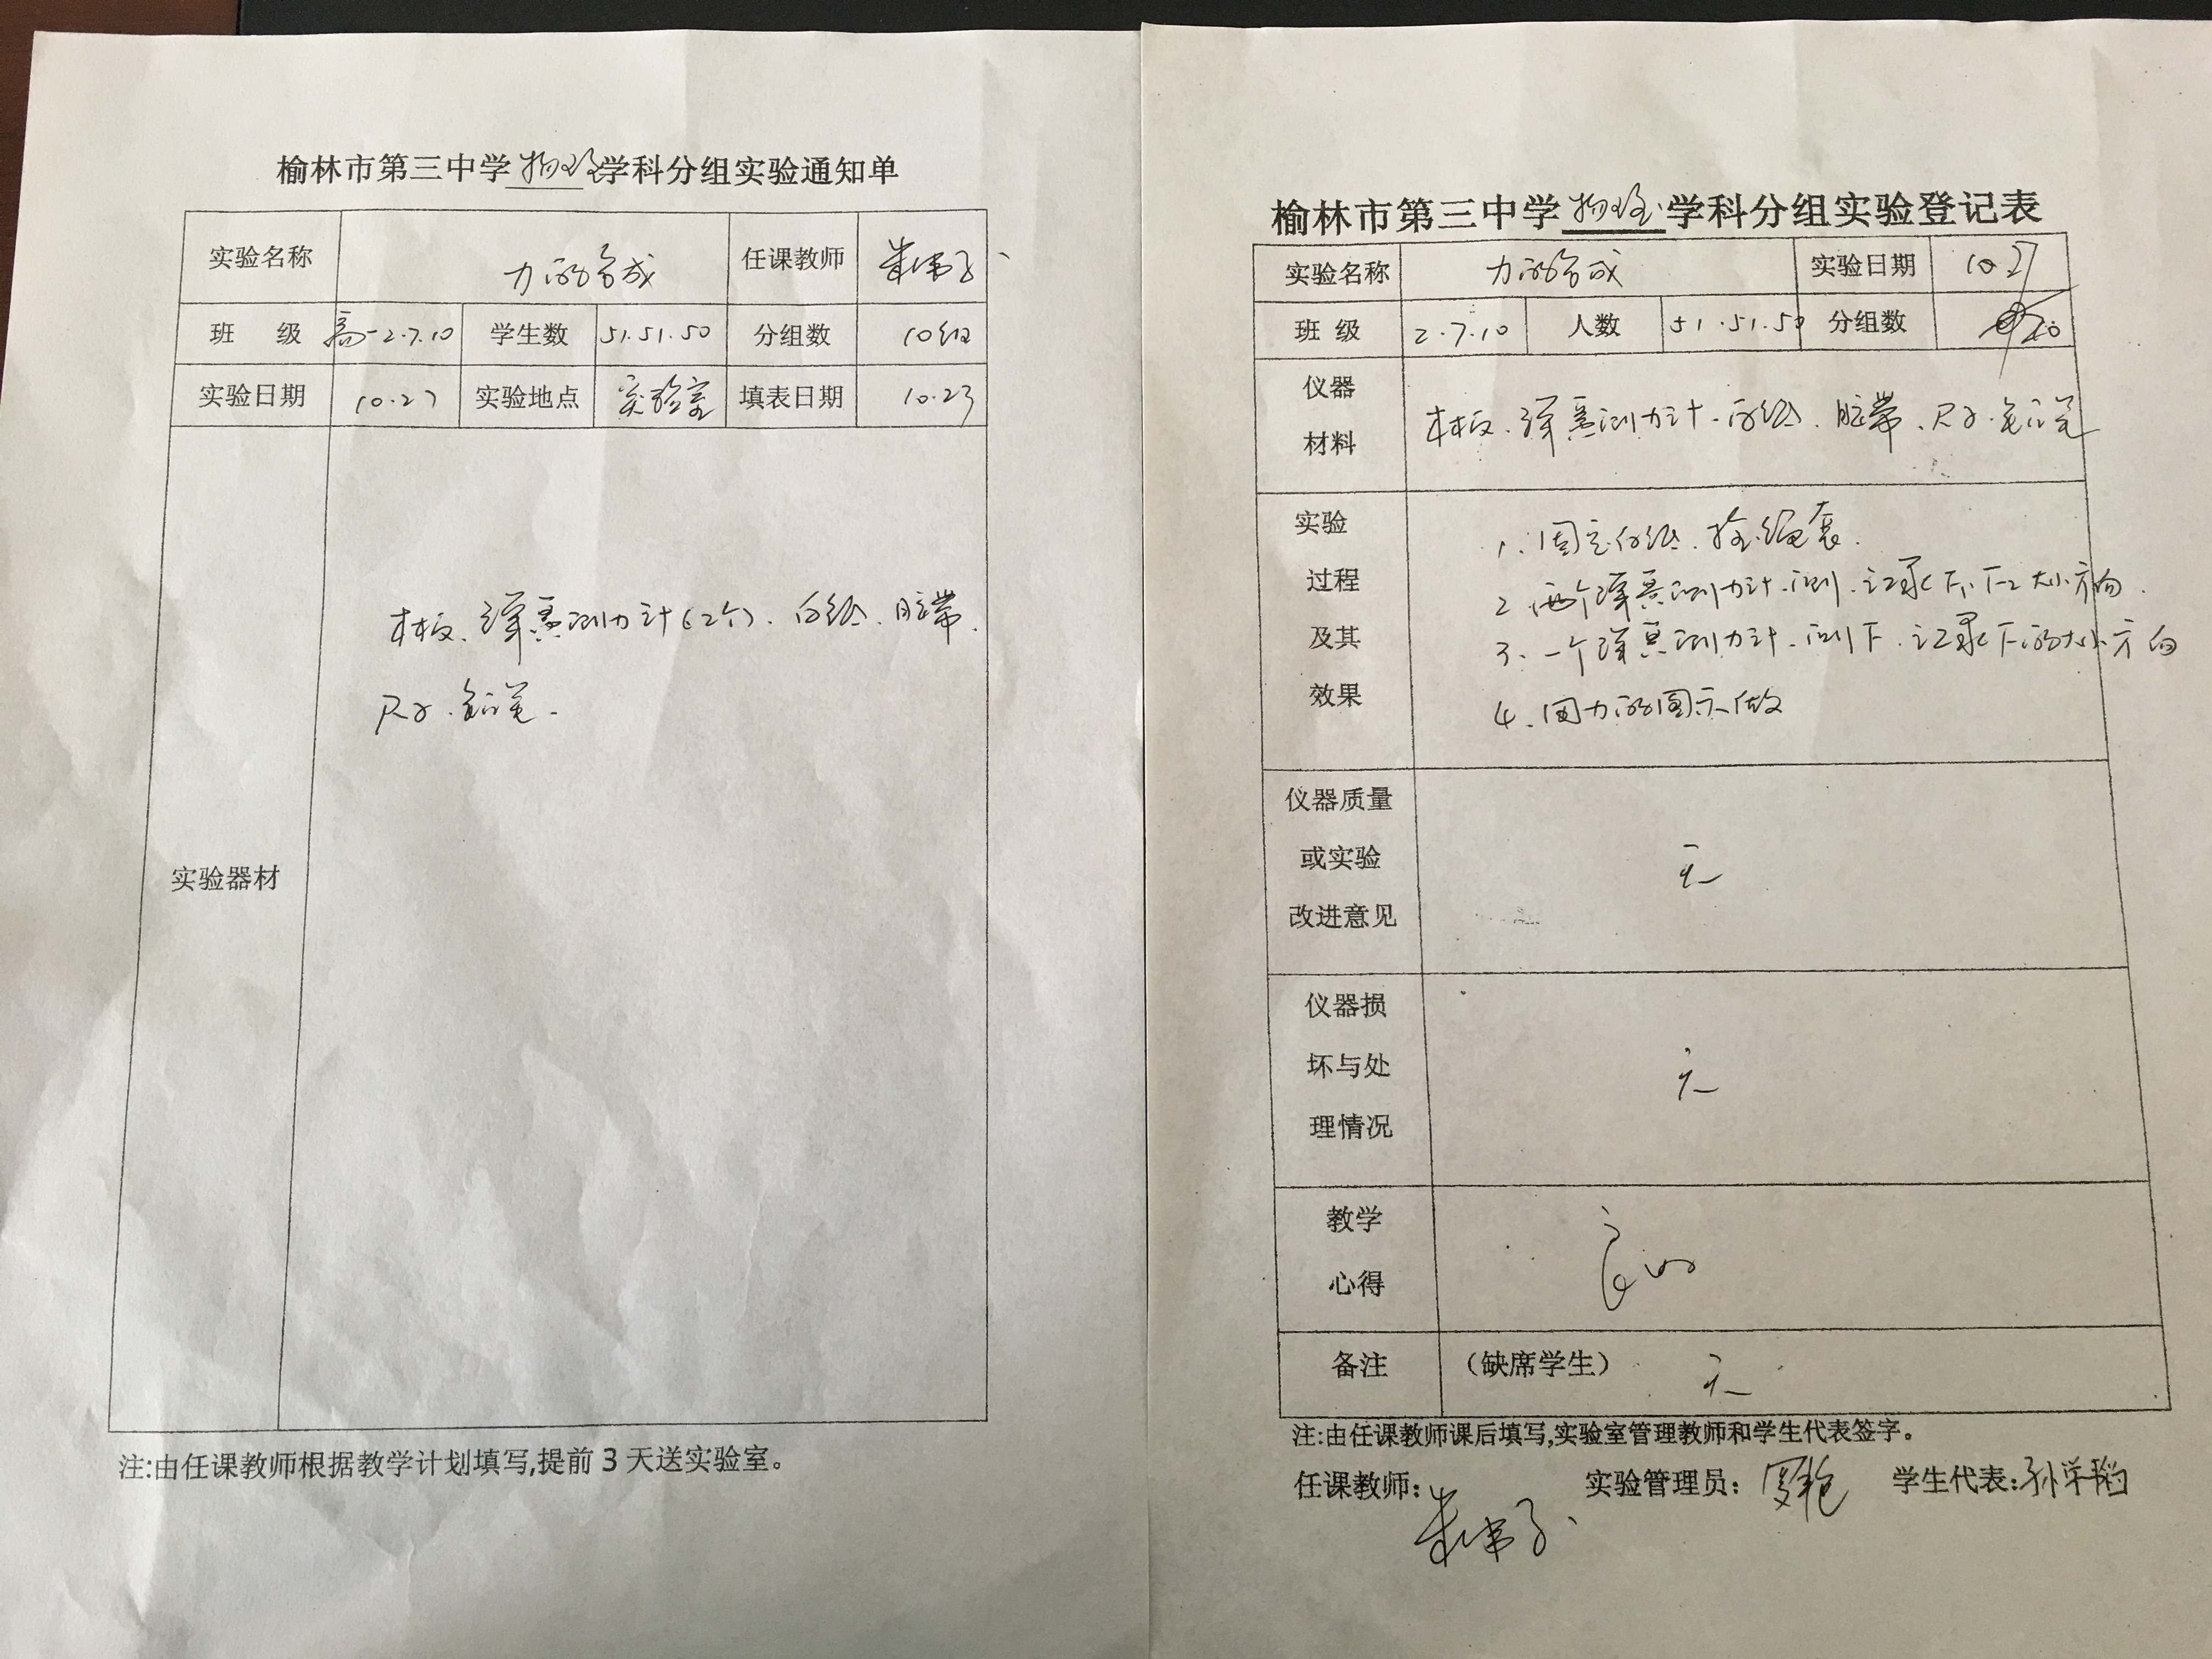 榆林市第三中学物理学科分组实验通知单
实验名称 力的合成 任课教师
班 级 高一2.7.10 学生数 51.51.50 分组数 10组
实验日期 10.27 实验地点 实验室 填表日期 10.23
实验器材
木板、弹簧测力计(2个)、白纸、胶带、
尺子、铅笔.
注:由任课教师根据教学计划填写,提前3天送实验室。
榆林市第三中学物理学科分组实验登记表
实验名称 力的合成 实验日期 10.27
班 级 2.7.10 人数 51.51.50 分组数
仪器
材料
木板、弹簧测力计、白纸、胶带、尺子、铅笔
实验
过程
及其
效果
1、固定白纸、拴绳套.
2、两个弹簧测力计、测、记录F1、F2大小方向.
3、一个弹簧测力计、测F、记录F的大小方向
4、用力的图示做
仪器质量
或实验
改进意见
无
仪器损
坏与处
理情况
无
教学
心得
良好
备注 （缺席学生） 无
注:由任课教师课后填写,实验室管理教师和学生代表签字。
任课教师: 实验管理员: 学生代表: